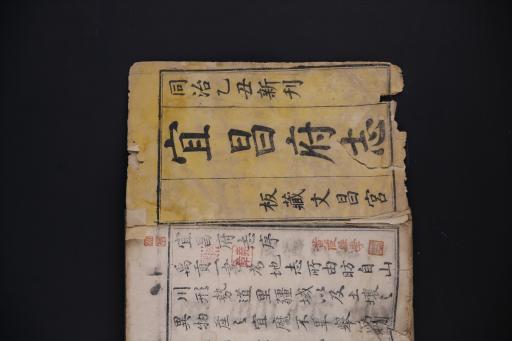 同治乙丑新刊
宜昌府志
板藏文昌宮
宜昌府志序
禹貢一書地志所由昉自山
川形勢道里疆域以及土壤之
異物產之宜靡不畢